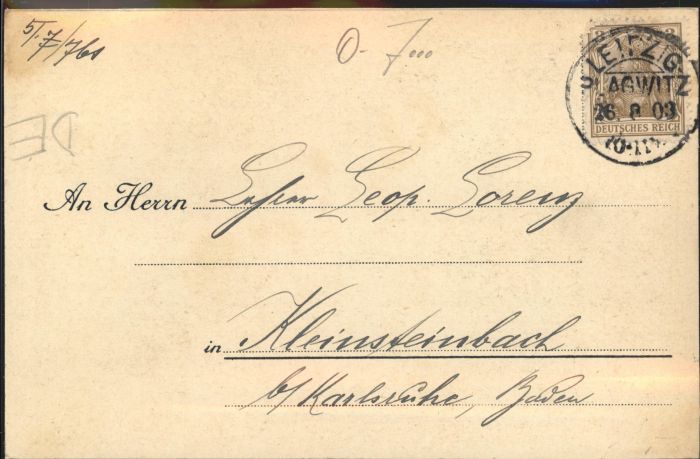 5/.7/760
0- 7...
3 3
LEIPZIG
LAGWITZ
26. 8 03
10-11V.
DEUTSCHES REICH
DE
An Herrn Lehrer Leop. Lorenz
in Kleinsteinbach
b/ Karlsruhe, Baden